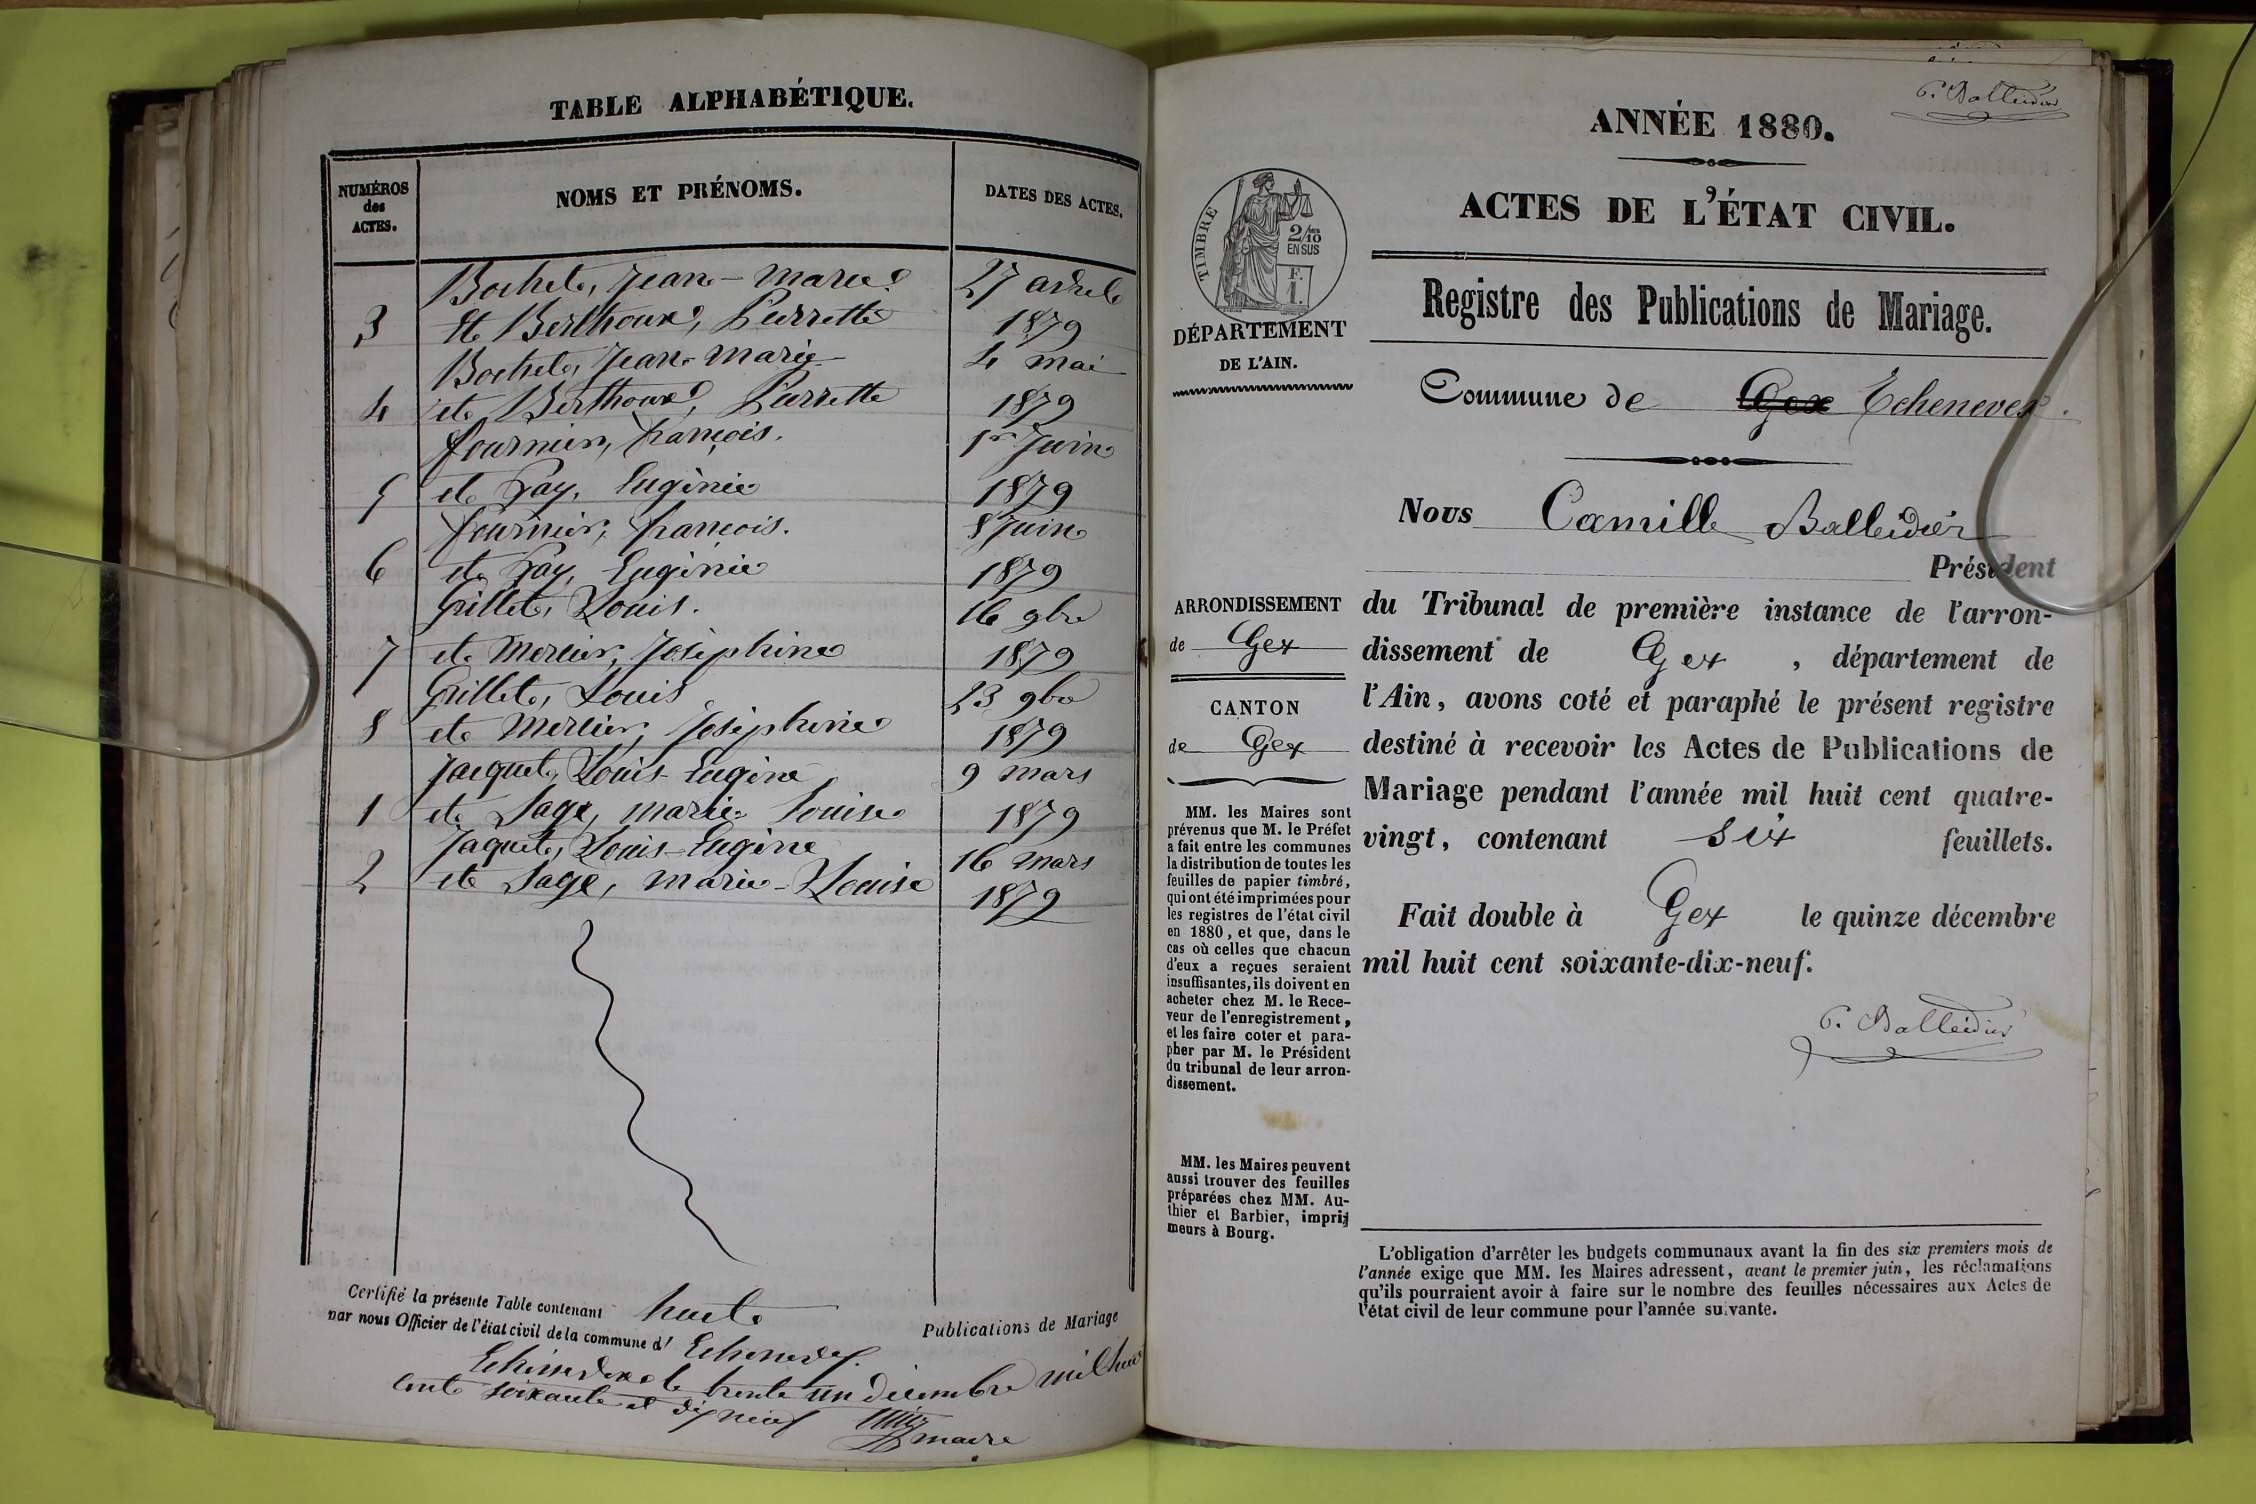 TABLE ALPHABÉTIQUE.
NUMÉROS des ACTES.
NOMS ET PRÉNOMS.
DATES DES ACTES.
Bochet, Jean-Marie 27 avril
3 et Berthoux, Pierrette 1879
Bochet, Jean-Marie 4 mai
4 et Berthoux, Pierrette 1879
Fournier, François. 1er Juin
5 et Gay, Eugénie 1879
Fournier, François. 8 Juin
6 et Gay, Eugénie 1879
Grillet, Louis. 16 9bre
7 et Mercier, Joséphine 1879
Grillet, Louis 23 9bre
8 et Mercier, Joséphine 1879
Jacquet, Louis-Eugène 9 mars
1 et Sage, Marie-Louise 1879
Jaquet, Louis-Eugène 16 mars
2 et Sage, Marie-Louise 1879
Certifié la présente Table contenant huit Publications de Mariage
par nous Officier de l'état civil de la commune d' Echenevex.
Echenevex le trente un décembre mil huit
cent soixante et dix neuf
maire
C. Balleidier
ANNÉE 1880.
ACTES DE L'ÉTAT CIVIL.
Registre des Publications de Mariage.
TIMBRE
2/10
EN SUS
F.
1.
DÉPARTEMENT
DE L'AIN.
Commune de Gex Echenevex.
Nous Camille Balleidier
Président
du Tribunal de première instance de l'arron-
dissement de Gex, département de
l'Ain, avons coté et paraphé le présent registre
destiné à recevoir les Actes de Publications de
Mariage pendant l'année mil huit cent quatre-
vingt, contenant six feuillets.
Fait double à Gex le quinze décembre
mil huit cent soixante-dix-neuf.
C. Balleidier
ARRONDISSEMENT
de Gex
CANTON
de Gex
MM. les Maires sont
prévenus que M. le Préfet
a fait entre les communes
la distribution de toutes les
feuilles de papier timbré,
qui ont été imprimées pour
les registres de l'état civil
en 1880, et que, dans le
cas où celles que chacun
d'eux a reçues seraient
insuffisantes, ils doivent en
acheter chez M. le Rece-
veur de l'enregistrement,
et les faire coter et para-
pher par M. le Président
du tribunal de leur arron-
dissement.
MM. les Maires peuvent
aussi trouver des feuilles
préparées chez MM. Au-
thier et Barbier, impri-
meurs à Bourg.
L'obligation d'arrêter les budgets communaux avant la fin des six premiers mois de
l'année exige que MM. les Maires adressent, avant le premier juin, les réclamations
qu'ils pourraient avoir à faire sur le nombre des feuilles nécessaires aux Actes de
l'état civil de leur commune pour l'année suivante.